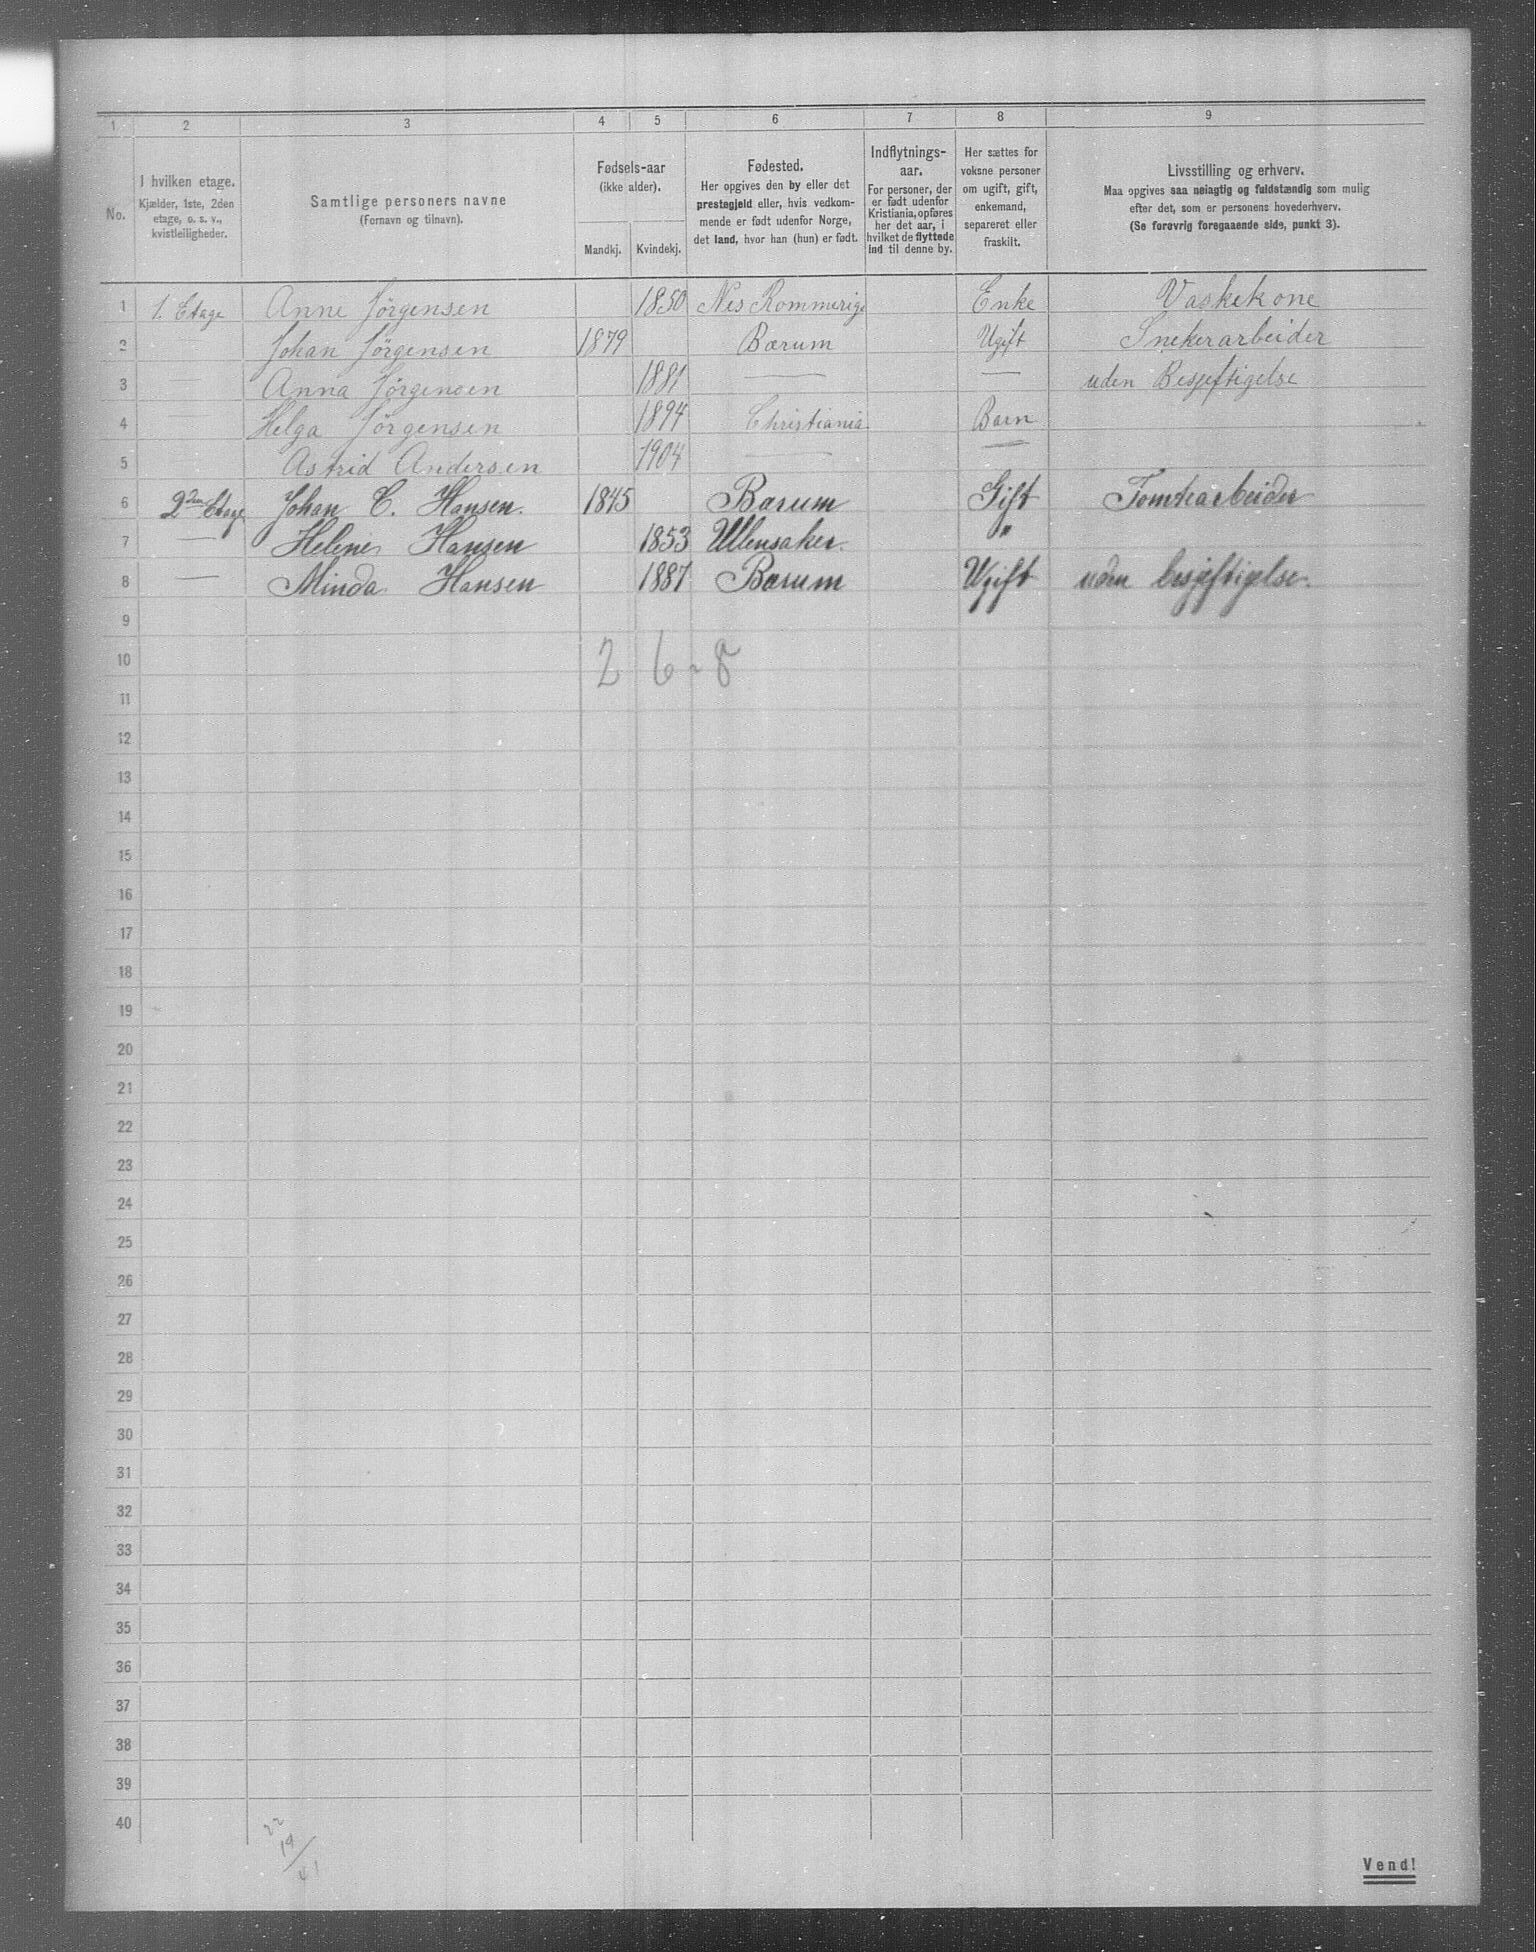 1 2 3 4 5 6 7 8 9
No.
I hvilken etage.
Kjælder, 1ste, 2den
etage, o. s. v.,
kvistleiligheder.
Samtlige personers navne
(Fornavn og tilnavn).
Fødsels-aar
(ikke alder).
Mandkj. Kvindekj.
Fødested.
Her opgives den by eller det
prestegjeld eller, hvis vedkom-
mende er født udenfor Norge,
det land, hvor han (hun) er født.
Indflytnings-
aar.
For personer, der
er født udenfor
Kristiania, opføres
her det aar, i
hvilket de flyttede
ind til denne by.
Her sættes for
voksne personer
om ugift, gift,
enkemand,
separeret eller
fraskilt.
Livsstilling og erhverv.
Maa opgives saa nøiagtig og fuldstændig som mulig
efter det, som er personens hovederhverv.
(Se forøvrig foregaaende side, punkt 3).
1 1. Etage Anne Jörgensen 1850 Nes Rommerige Enke Vaskekone
2 — Johan Jörgensen 1879 Bærum Ugift Snekerarbeider
3 — Anna Jörgensen 1881 — — uden Besjeftigelse
4 — Helga Jörgensen 1894 Christiania Barn
5 — Astrid Andersen 1904 — —
6 2den Etage Johan C. Hansen. 1845 Bærum Gift Tomtearbeider
7 — Helene Hansen 1853 Ullensaker. "
8 — Minda Hansen 1887 Bærum Ugift uden besjeftigelse.
9
10 2 6 - 8
11
12
13
14
15
16
17
18
19
20
21
22
23
24
25
26
27
28
29
30
31
32
33
34
35
36
37
38
39
40
22
19
41
Vend!